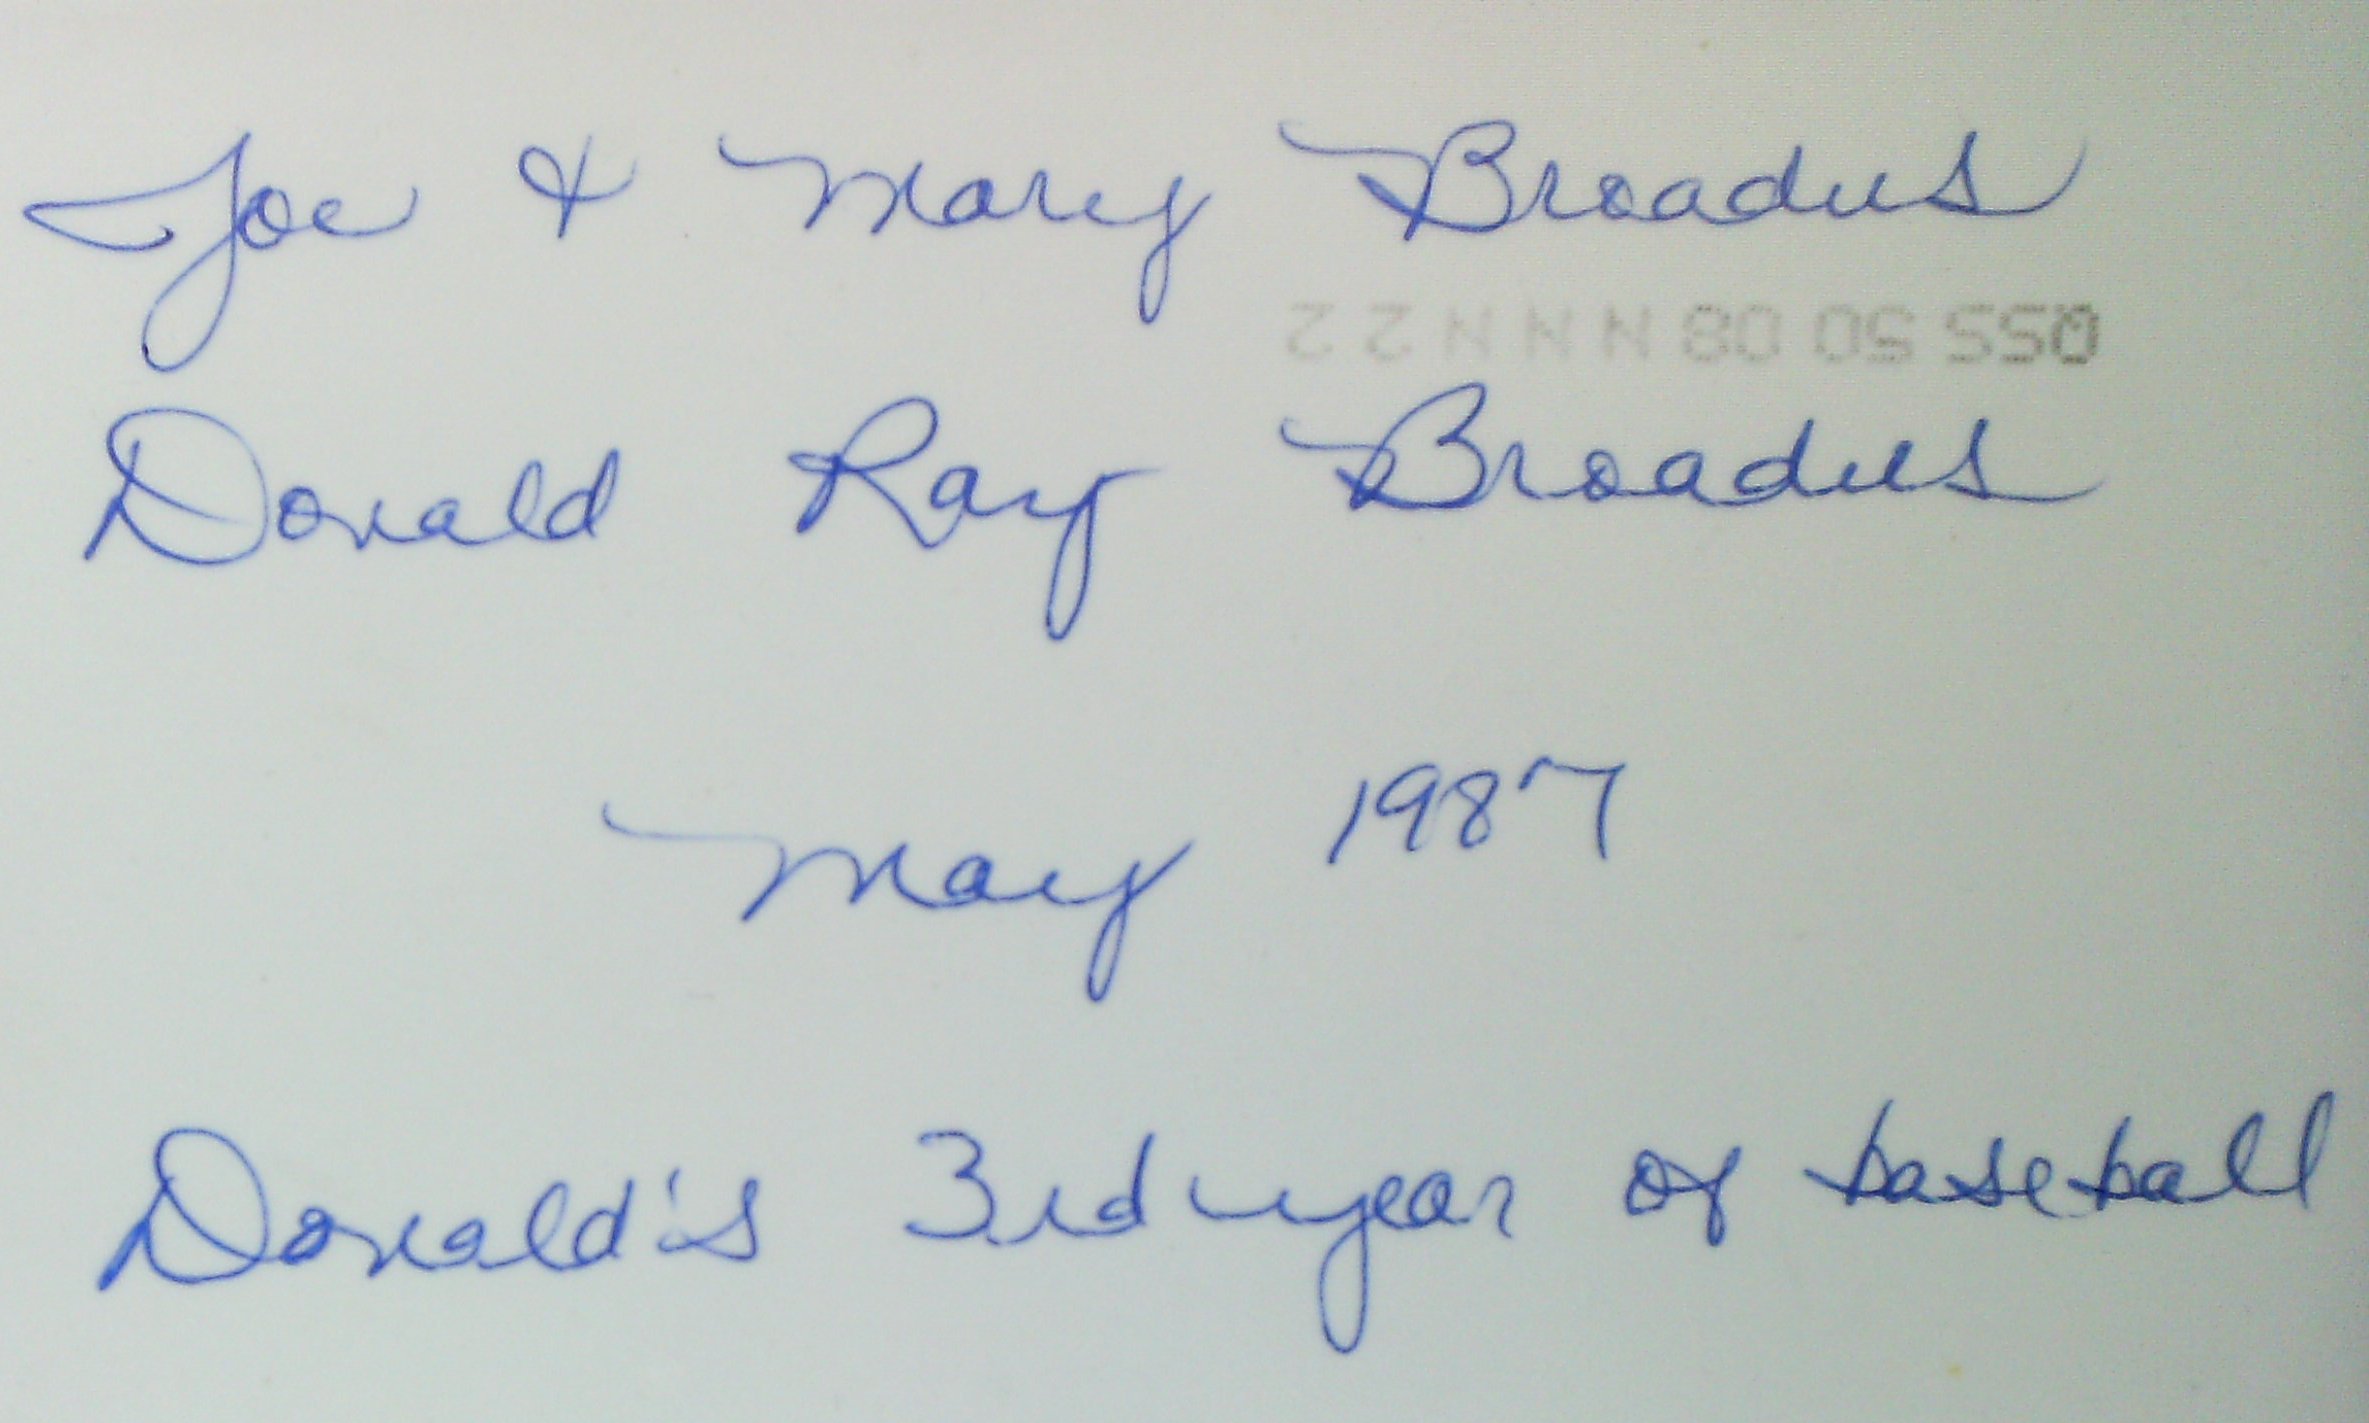 Joe & Mary Broadus
50 08 N N N 2 2
Donald Ray Broadus
May 1987
Donald's 3rd year of baseball